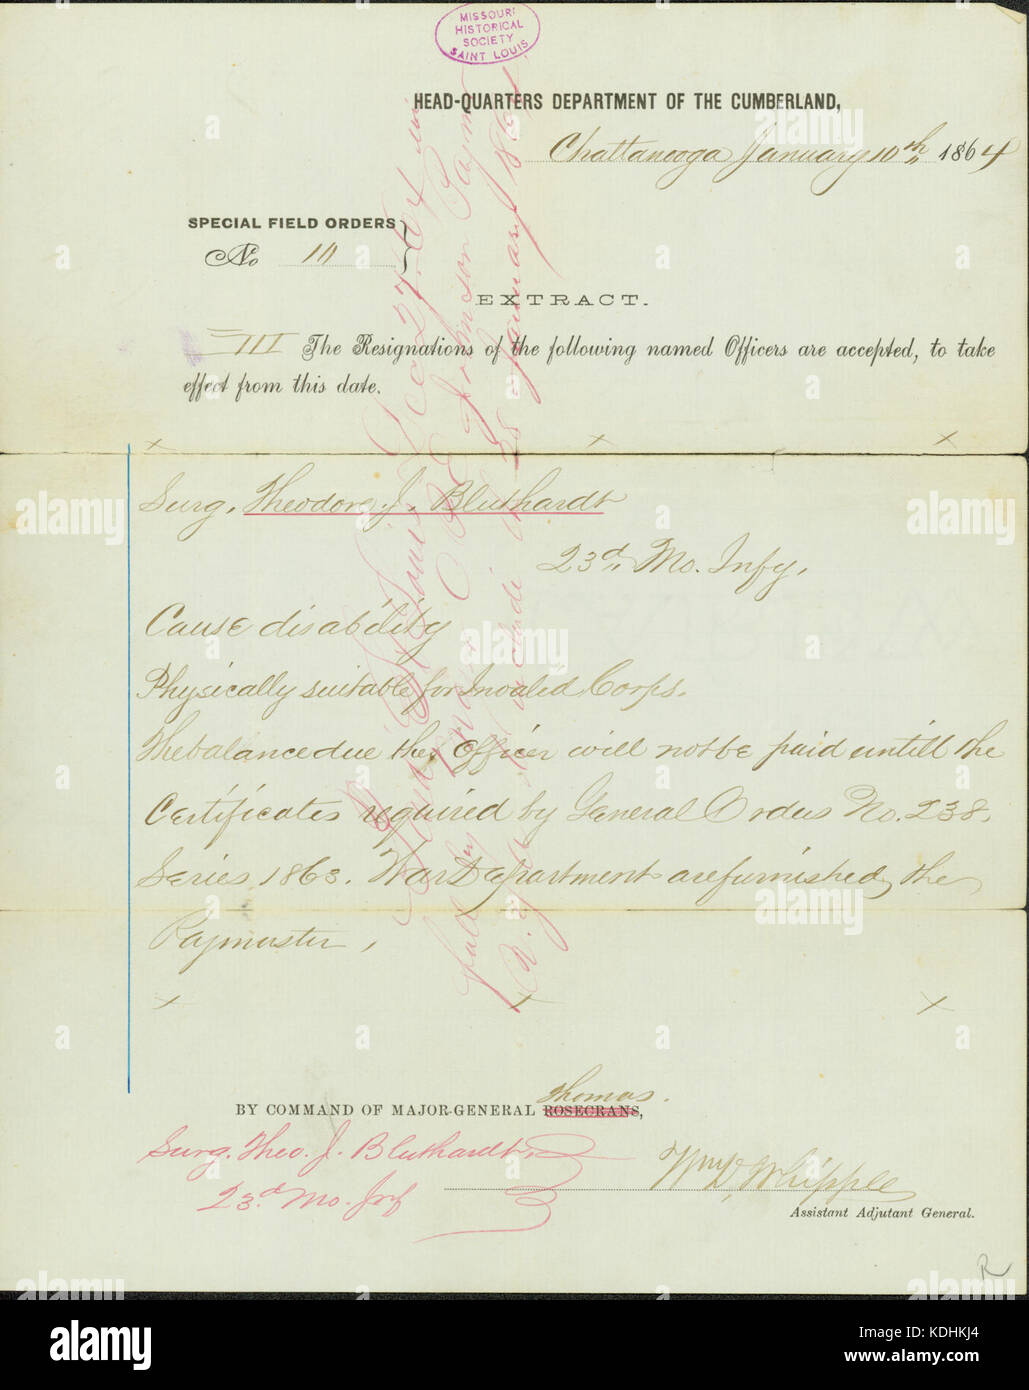 MISSOURI
HISTORICAL
SOCIETY
SAINT LOUIS
HEAD-QUARTERS DEPARTMENT OF THE CUMBERLAND,
Chattanooga January 10th, 1864
SPECIAL FIELD ORDERS
No 10
EXTRACT.
III The Resignations of the following named Officers are accepted, to take
effect from this date.
Surg. Theodore J. Bluthardt
23d. Mo. Infy,
Cause disability
Physically suitable for Invalid Corps.
The balance due the Officer will not be paid untill the
Certificates required by General Orders No. 238.
Series 1863. War Department are furnished the
Paymaster,
BY COMMAND OF MAJOR-GENERAL ROSECRANS,
Thomas.
Surg. Theo. J. Bluthardt,
23d Mo. Inf
Wm D. Whipple
Assistant Adjutant General.
R
Saint Louis Dec 27. 64
Johnson Paym
January 1864
alamy
a
alamy
Image ID: KDHKJ4
www.alamy.com